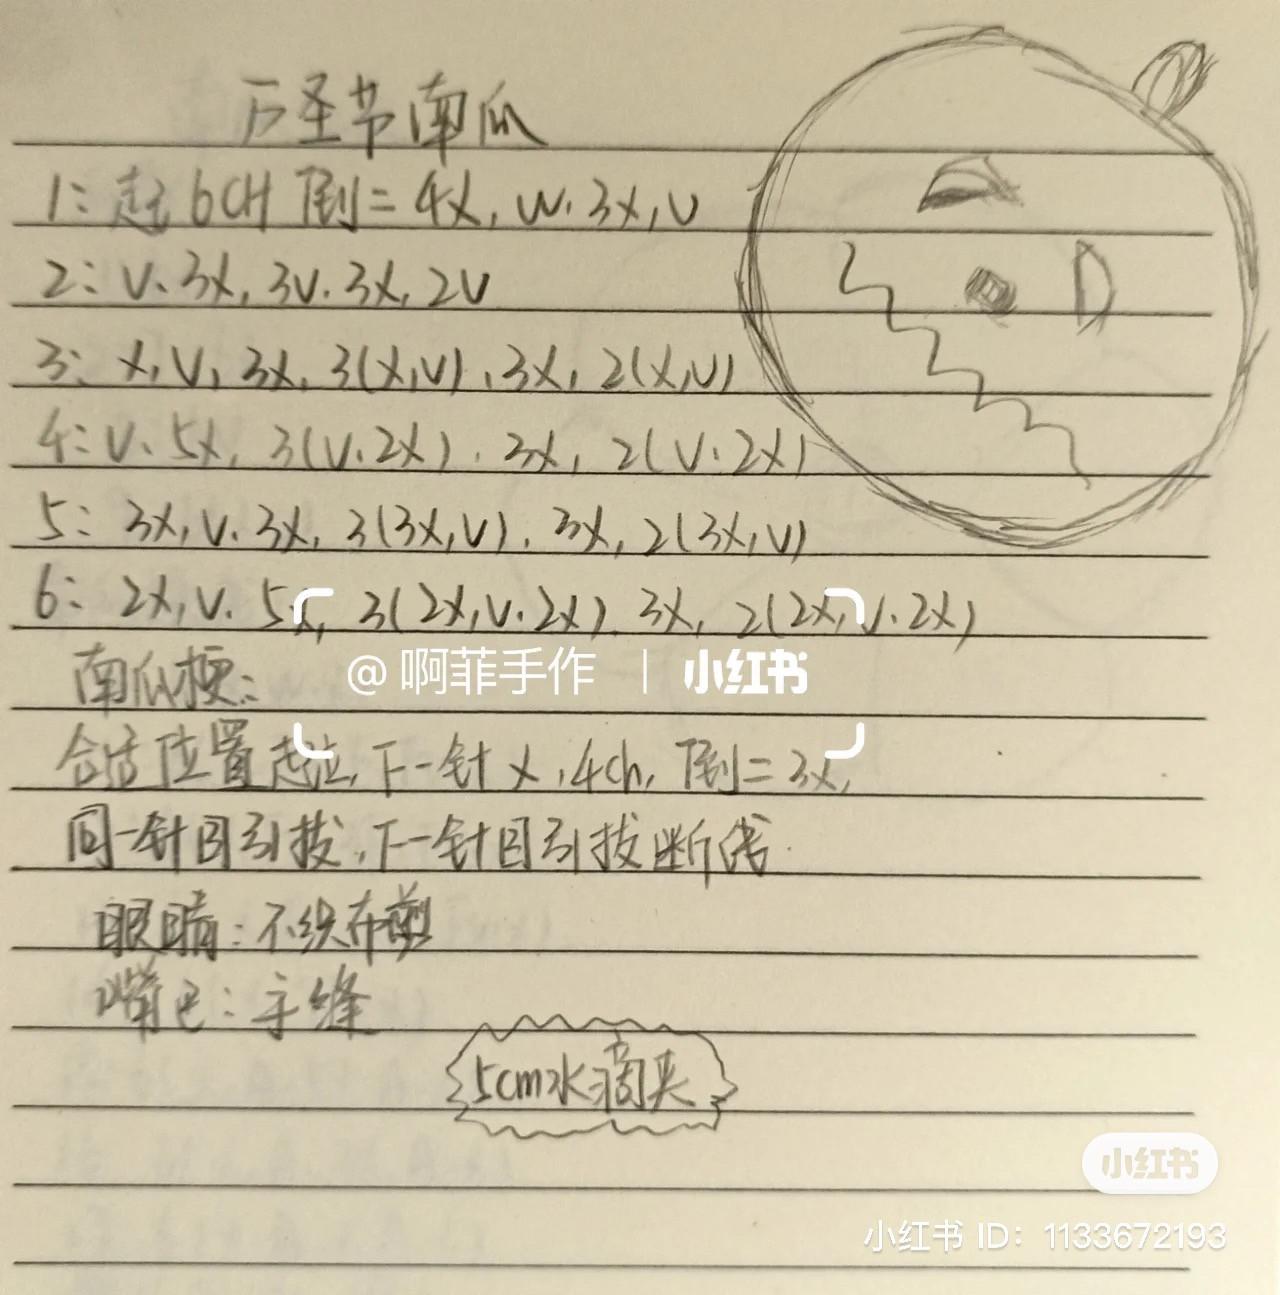 万圣节南瓜
1: 起6CH 倒二4X, W. 3X, V
2: V. 3X, 3V. 3X, 2V
3: X, V, 3X, 3(X,V), 3X, 2(X,V)
4: V. 5X, 3(V. 2X). 3X, 2(V. 2X)
5: 3X, V. 3X, 3(3X,V). 3X, 2(3X,V)
6: 2X, V. 5X, 3(2X,V. 2X). 3X, 2(2X,V. 2X)
南瓜梗:
@啊菲手作 | 小红书
合适位置起立, 下一针X, 4Ch, 倒二3X,
同一针目引拔, 下一针目引拔断线.
眼睛: 不织布剪
嘴巴: 手缝
5cm水滴夹
小红书
小红书 ID: 1133672193